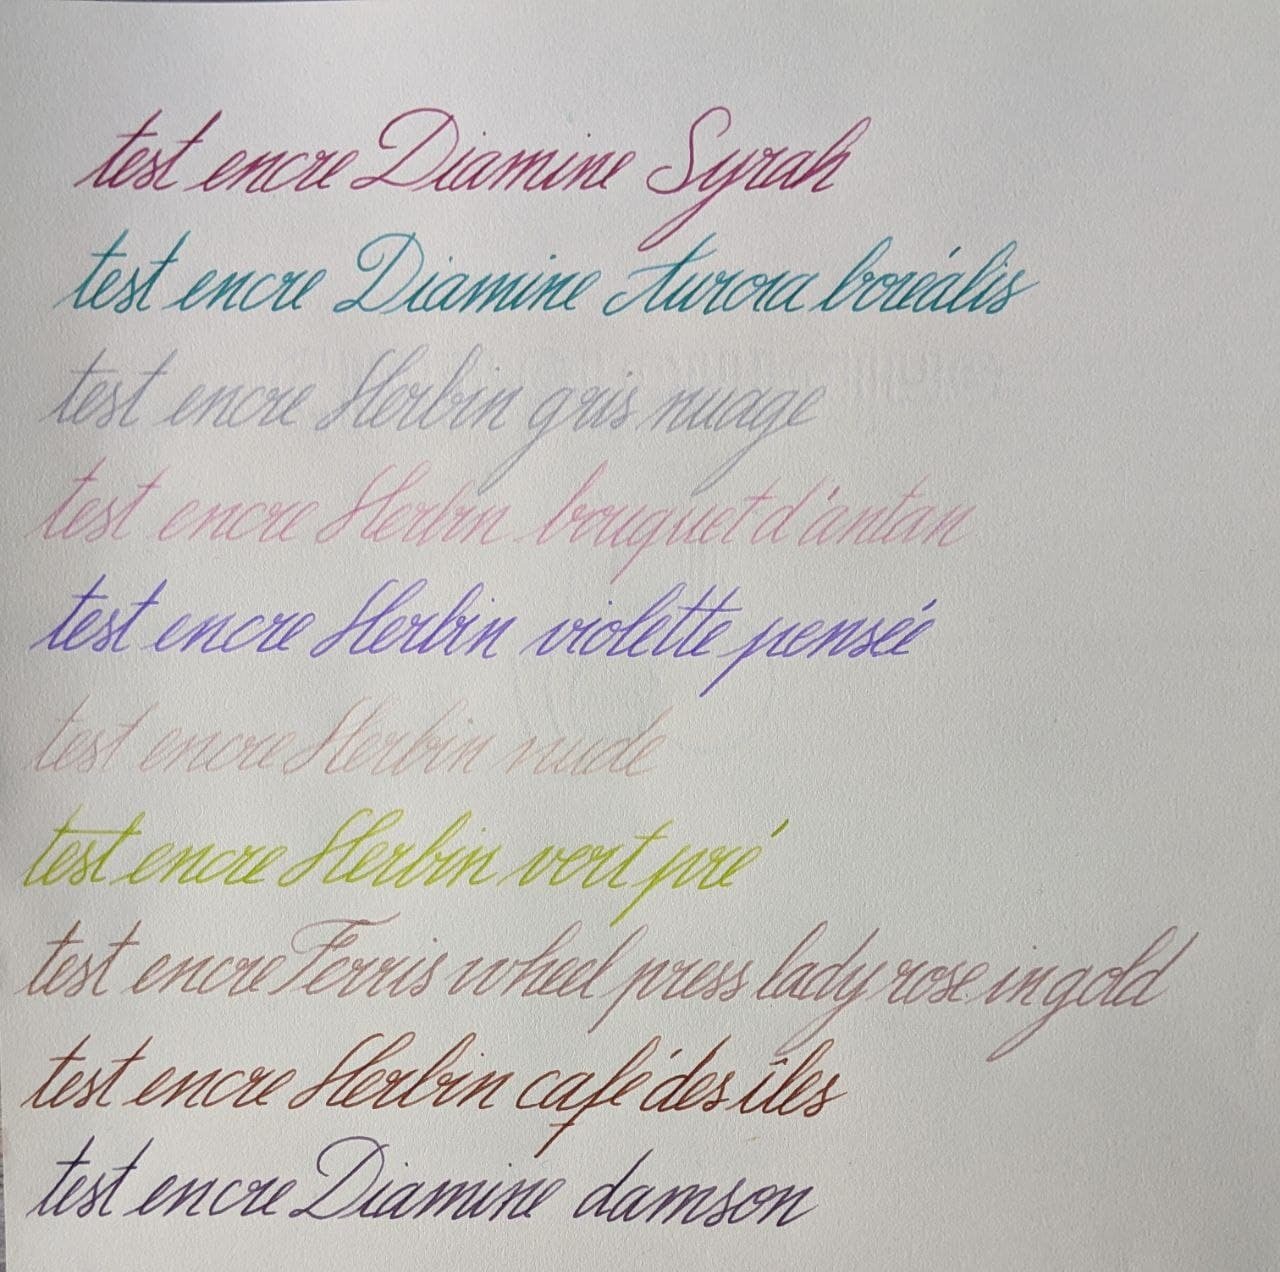 test encre Diamine Syrah
test encre Diamine Aurora boréalis
test encre Herbin gris nuage
test encre Herbin bouquet d'antan
test encre Herbin violette pensée
test encre Herbin nude
test encre Herbin vert pré
test encre Ferris wheel press lady rose in gold
test encre Herbin café des îles
test encre Diamine damson